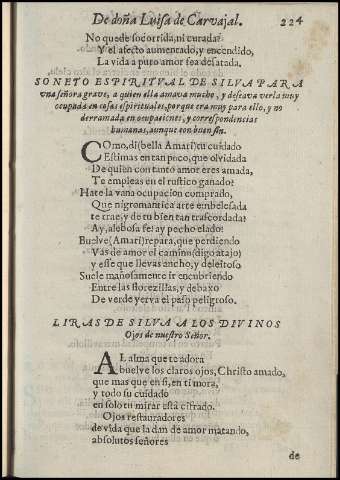 De doña Luisa de Carvajal. 224
No quede socorrida, ni curada?
Y el afecto aumentado, y encendido,
La vida a puro amor sea desatada.
SONETO ESPIRITVAL DE SILVA PARA
vna señora graue, a quien ella amaua mucho, y desseaua verla muy
ocupada en cosas espirituales, porque era muy para ello, y no
derramada en ocupaciones, y correspondencias
humanas, aunque con buen fin.
COmo, di (bella Amari) tu cuidado
Estimas en tan poco, que oluidada
De quien con tanto amor eres amada,
Te empleas en el rustico ganado?
Hate la vana ocupacion comprado,
Que nigromantica arte embelesada
te trae, y de tu bien tan trascordada?
Ay, aleuosa fe! ay pecho elado!
Buelue (Amari) repara, que perdiendo
Vas de amor el camino (digo atajo)
y esse que lleuas ancho, y deleitoso
Suele mañosamente ir encubriendo
Entre las florezillas, y debaxo
De verde yerua el paso peligroso.
LIRAS DE SILVA A LOS DIVINOS
Ojos de nuestro Señor.
AL alma que te adora
Abuelue los claros ojos, Christo amado,
que mas que en si, en ti mora,
y todo su cuidado
en solo tu mirar està cifrado.
Ojos restauradores
de vida que la dan de amor matando,
absolutos señores
de